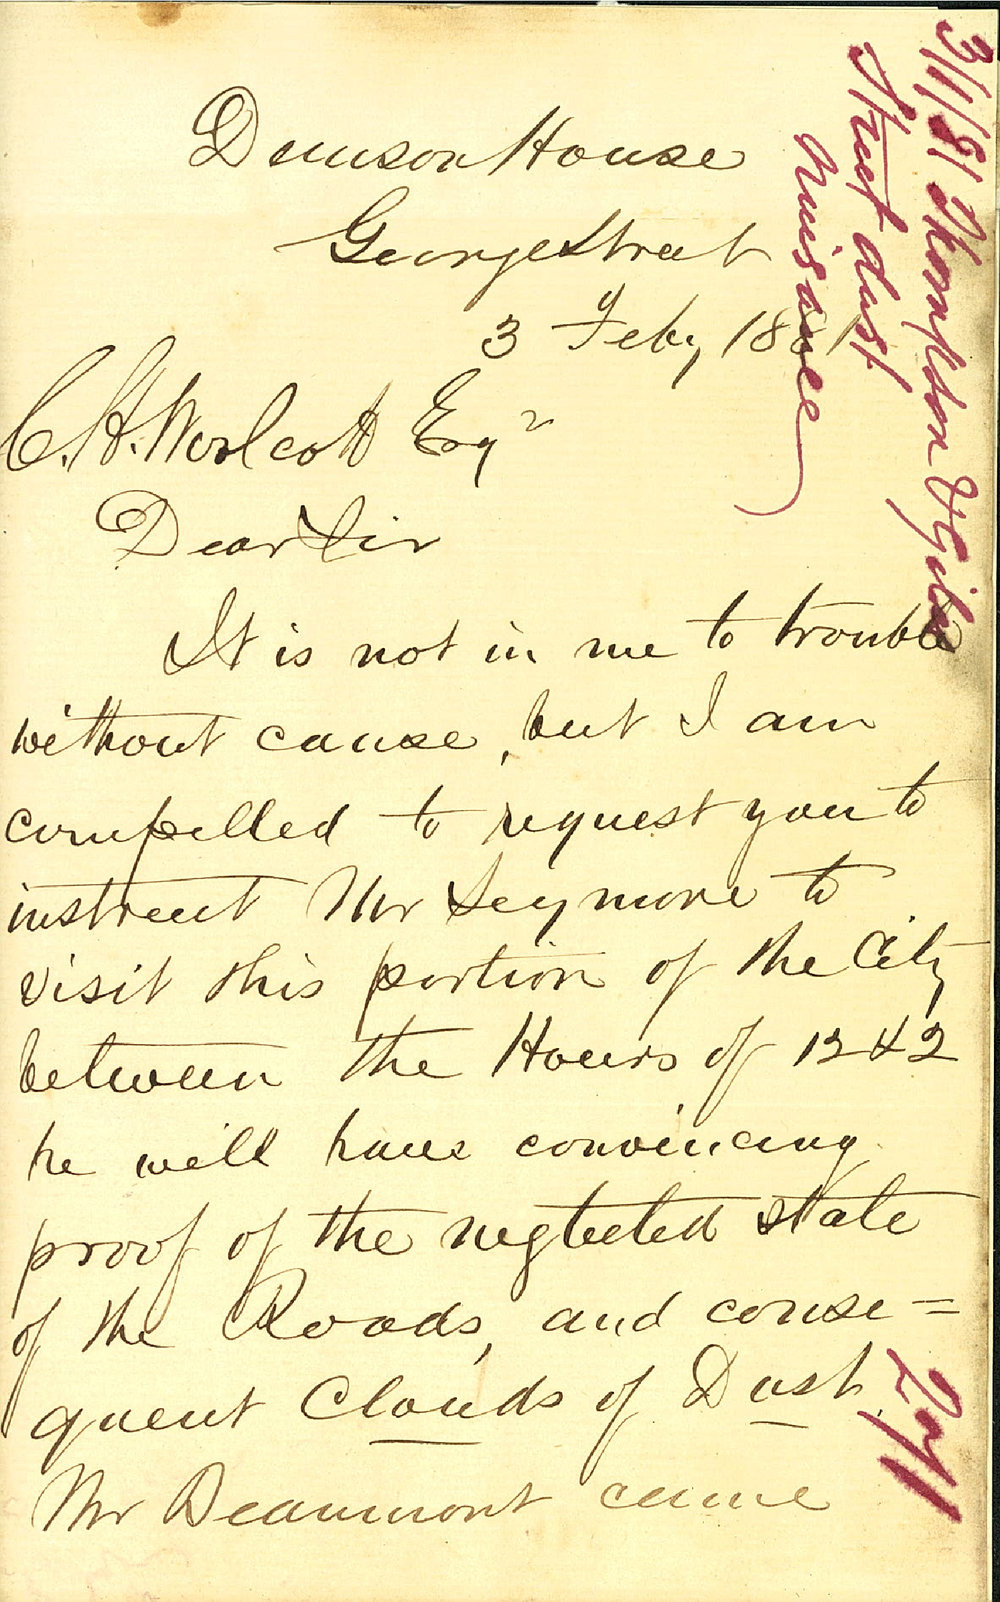 Denison House
George Street
3 Feby 1881
C. H. Woolcott Esqr
Dear Sir
It is not in me to trouble
without cause, but I am
compelled to request you to
instruct Mr Seymore to
visit this portion of the City
between the Hours of 12 & 2
he will have convincing
proof of the neglected state
of the Roads, and conse=
quent Clouds of Dust.
Mr Beaumont came
3/1/81 Thompson &
Street dust
nuisance